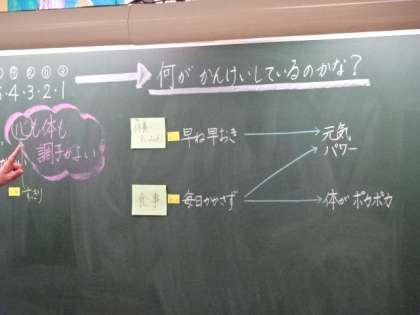 5・4・3・2・1
何が かんけいしているのかな？
心も体も
調子がよい
早ね早おき
元気
パワー
食事
毎日かかさず
体が ポカポカ
すっきり